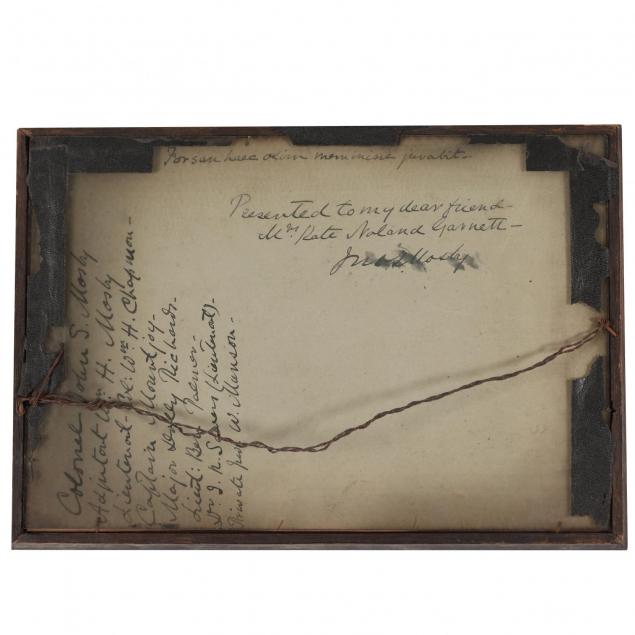 Forsan haec olim meminisse juvabit -
Presented to my dear friend -
Mrs Kate Noland Garnett -
Jno S. Mosby
Colonel John S. Mosby
Adjutant Wm H. Mosby
Lieutenant Col: Wm H. Chapman -
Captain Mountjoy -
Major Dolly Richards -
Lieut: Ben Palmer -
Dr J. N. (Lieutenant) -
Private W. Manson -